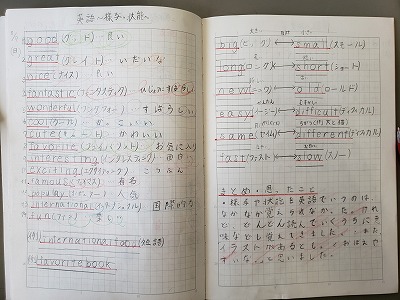 英語〜様子、状態〜
good(グッド) 良い
great(グレイト) いだいな
nice(ナイス) 良い
fantastic(ファンタスティック)
wonderful(ワンダフォー) すばらしい
cool(クール) かっこいい
cute(キュート) かわいい
favorite(フェイバリット) お気に入り
interesting(インタレスティング)
exciting(エクサイティング) こうふん
famous(フェイマス) 有名
popular 人気
international 国際的な
fun(ファン) 楽しい
international food
favorite book
big(ビッグ) ⟷ small(スモール)
long(ロング) ⟷ short(ショート)
new(ニュー) ⟷ old(オールド)
easy(イージー) ⟷ difficult(ディフィカルト)
same(セイム) ⟷ different(ディファレント)
fast(ファスト) ⟷ slow(スロー)
まとめ・思ったこと
・様子や状態を英語でいうのは、
なかなか覚えられなかった。けれ
ど、どんどん読んでいくうちに意
味なども覚えてきました。また、
イラストがあると、
すいな、と思いました。